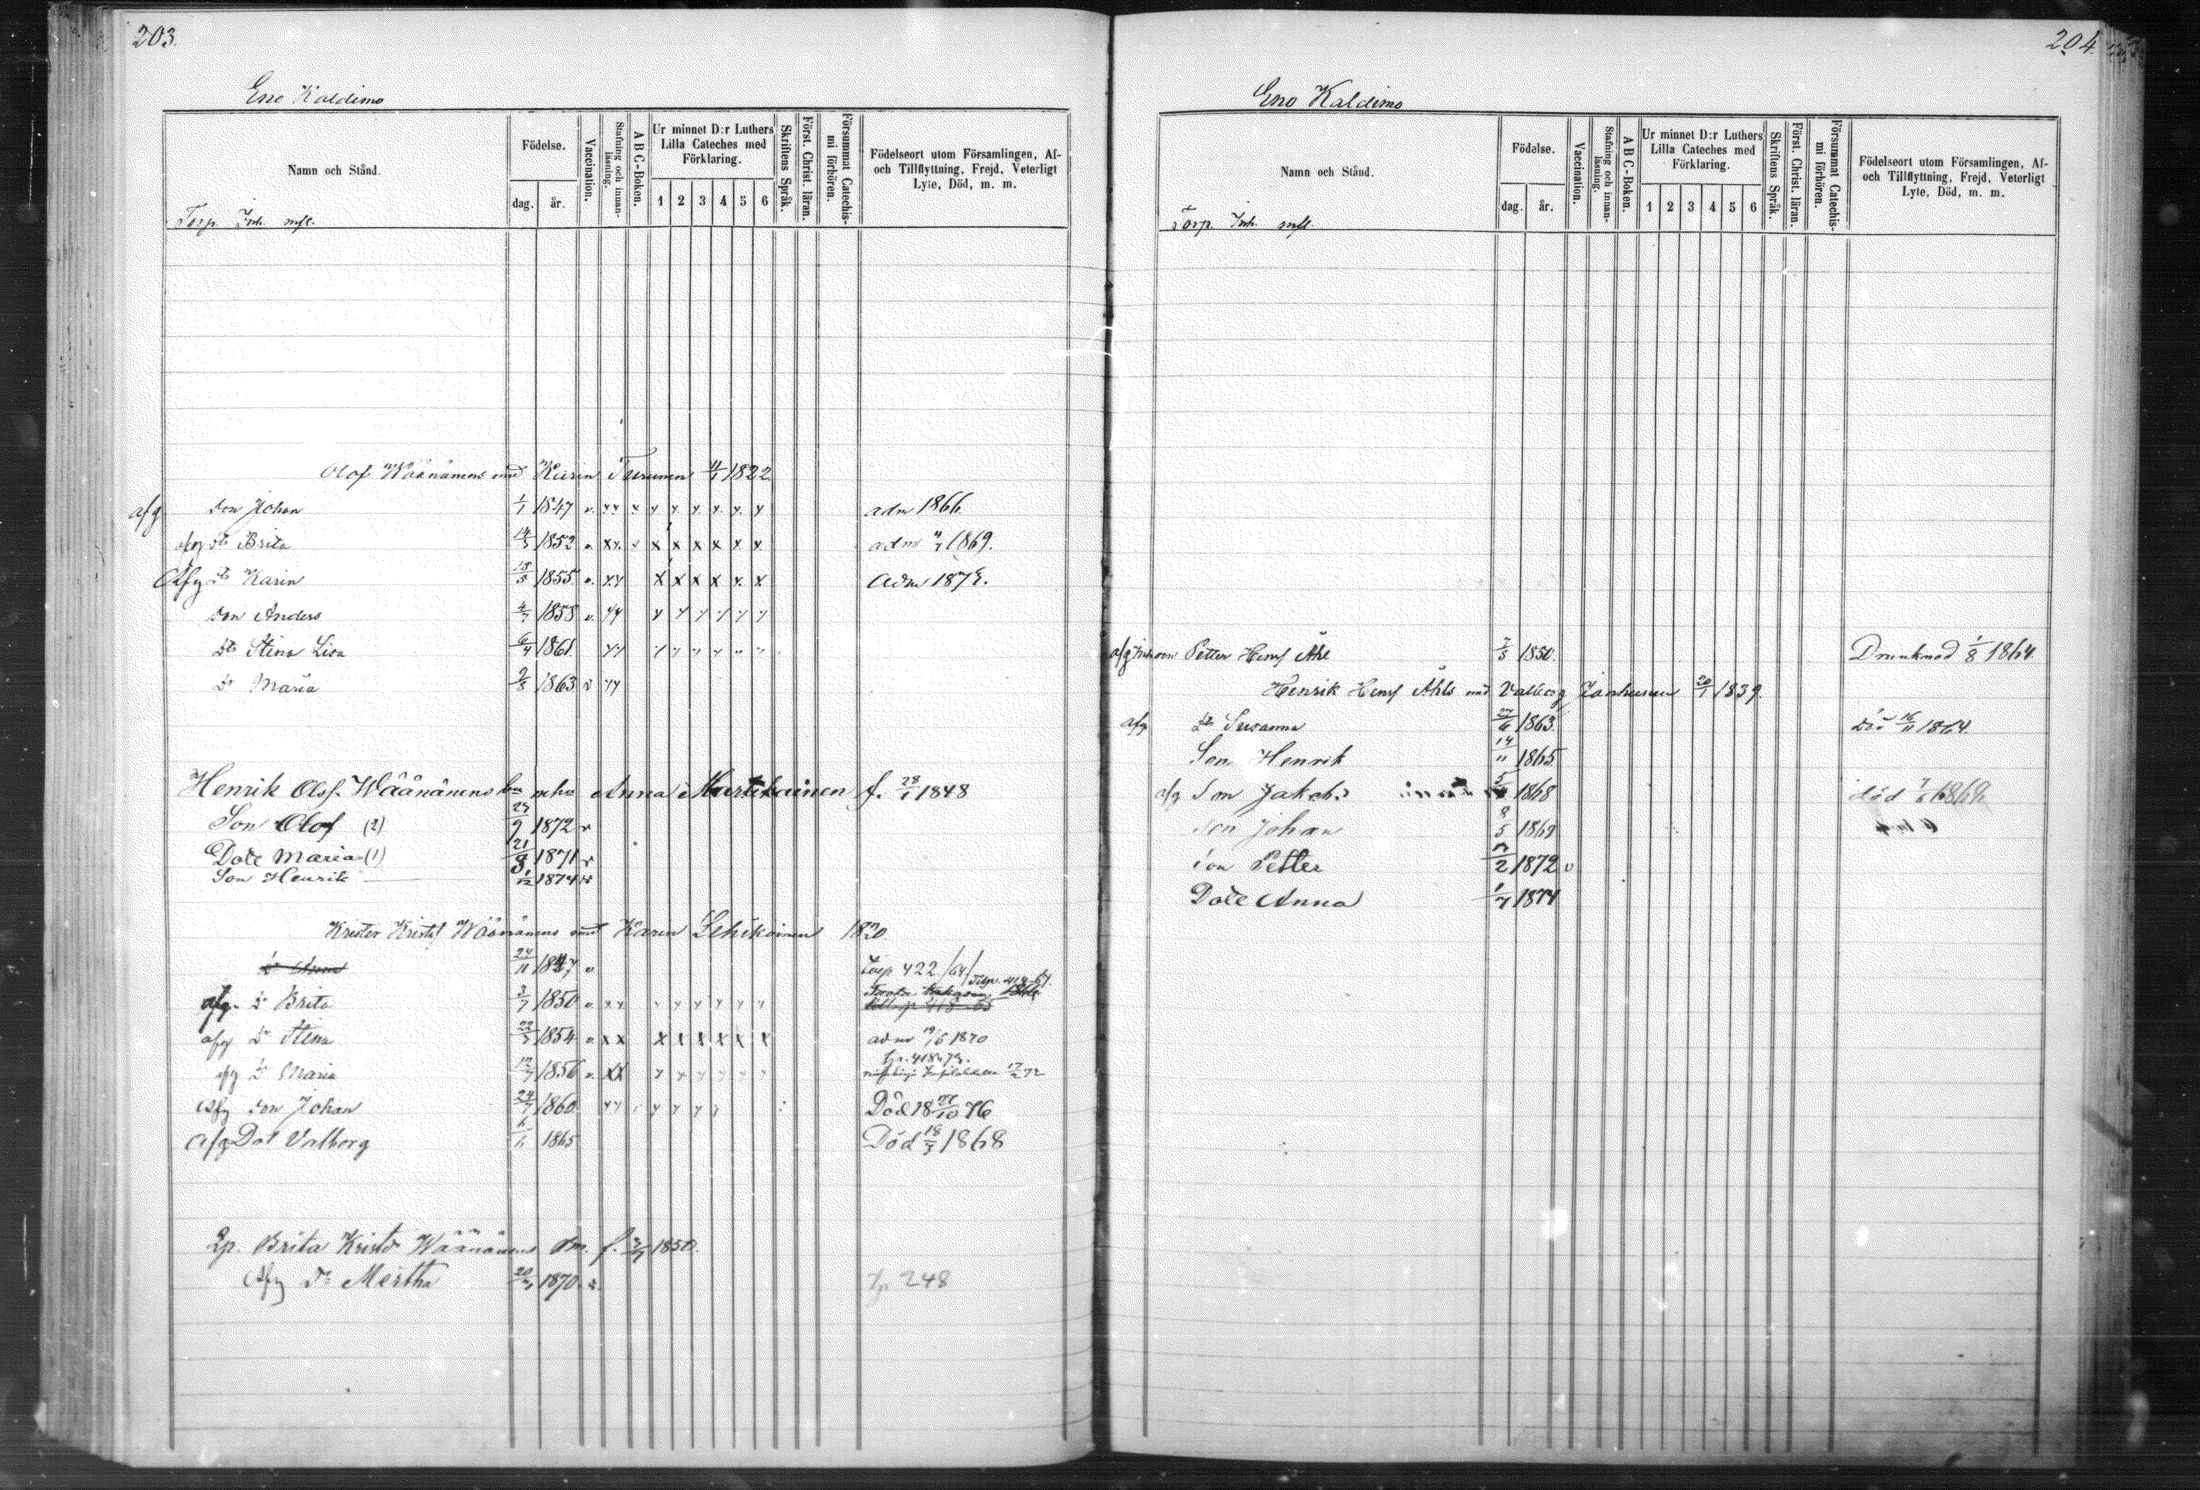 203.
Eno Kaldimo
Namn och Stånd.
Födelse.
dag.
år.
Vaccination.
Stafning och innan-läsning.
A B C-Boken.
Ur minnet D:r Luthers Lilla Cateches med Förklaring.
1 2 3 4 5 6
Skriftens Språk.
Först. Christ. läran.
Försummat Catechis-mi förhören.
Födelseort utom Församlingen, Af- och Tillflyttning, Frejd, Veterligt Lyte, Död, m. m.
Torp. Inh. mfl.
Olof Wäänänens med Karin Turunen 11/1 1822
afg Son Johan 1/1 1847 v. adm 1866
afg Dr Brita 1852 v adm 1869.
Afg Dr Karin 18/5 1855 v.
Son Anders 1858 v.
Dr Stina Lisa 6/4 1861
Dr Maria 2/8 1863 v
Henrik Olofs. Wäänänens Anna Martikainen f. 28/1 1848
Son Olof (2) 23/9 1872 v
Dotr Maria (1) 21/8 1871 v
Son Henrik 1/12 1874 v
Krister Krist Wäänänens med Karin Lehikoinen 1820
Dr Anna 24/11 1847 v 422/64/
afg. Dr Brita 3/7 1850 v
afg Dr Stina 22/3 1854 v adm 19/6 1870
afg Dr Maria 12/7 1856 v.
Afg Son Johan 24/7 1860 Död 18 /10 76
afg Dot Valborg 1865 Död 18/3 1868
Lp. Brita Kristr Wäänänens f. 3/7 1850.
Afg Dr Mertha 1870. v. 248
204.
Eno Kaldimo
Namn och Stånd.
Födelse.
dag.
år.
Vaccination.
Stafning och innan-läsning.
A B C-Boken.
Ur minnet D:r Luthers Lilla Cateches med Förklaring.
1 2 3 4 5 6
Skriftens Språk.
Först. Christ. läran
Försummat Catechis-mi förhören.
Födelseort utom Församlingen, Af- och Tillflyttning, Frejd, Veterligt Lyte, Död, m. m.
Torp. Inh. mfl.
afg Petter Henrs Åhl 7/5 1850. Drunknad 1/8 1864.
Henrik Henrs Åhls med Valborg Janhunen 20/1 1839.
afg Dr Susanna 27/6 1863. Död 16/11 1864.
Son Henrik 14/11 1865
afg Son Jakob 1868 död
Son Johan 8/5 1869
Son Petter 2 1872 v
Dotr Anna 1/7 1874